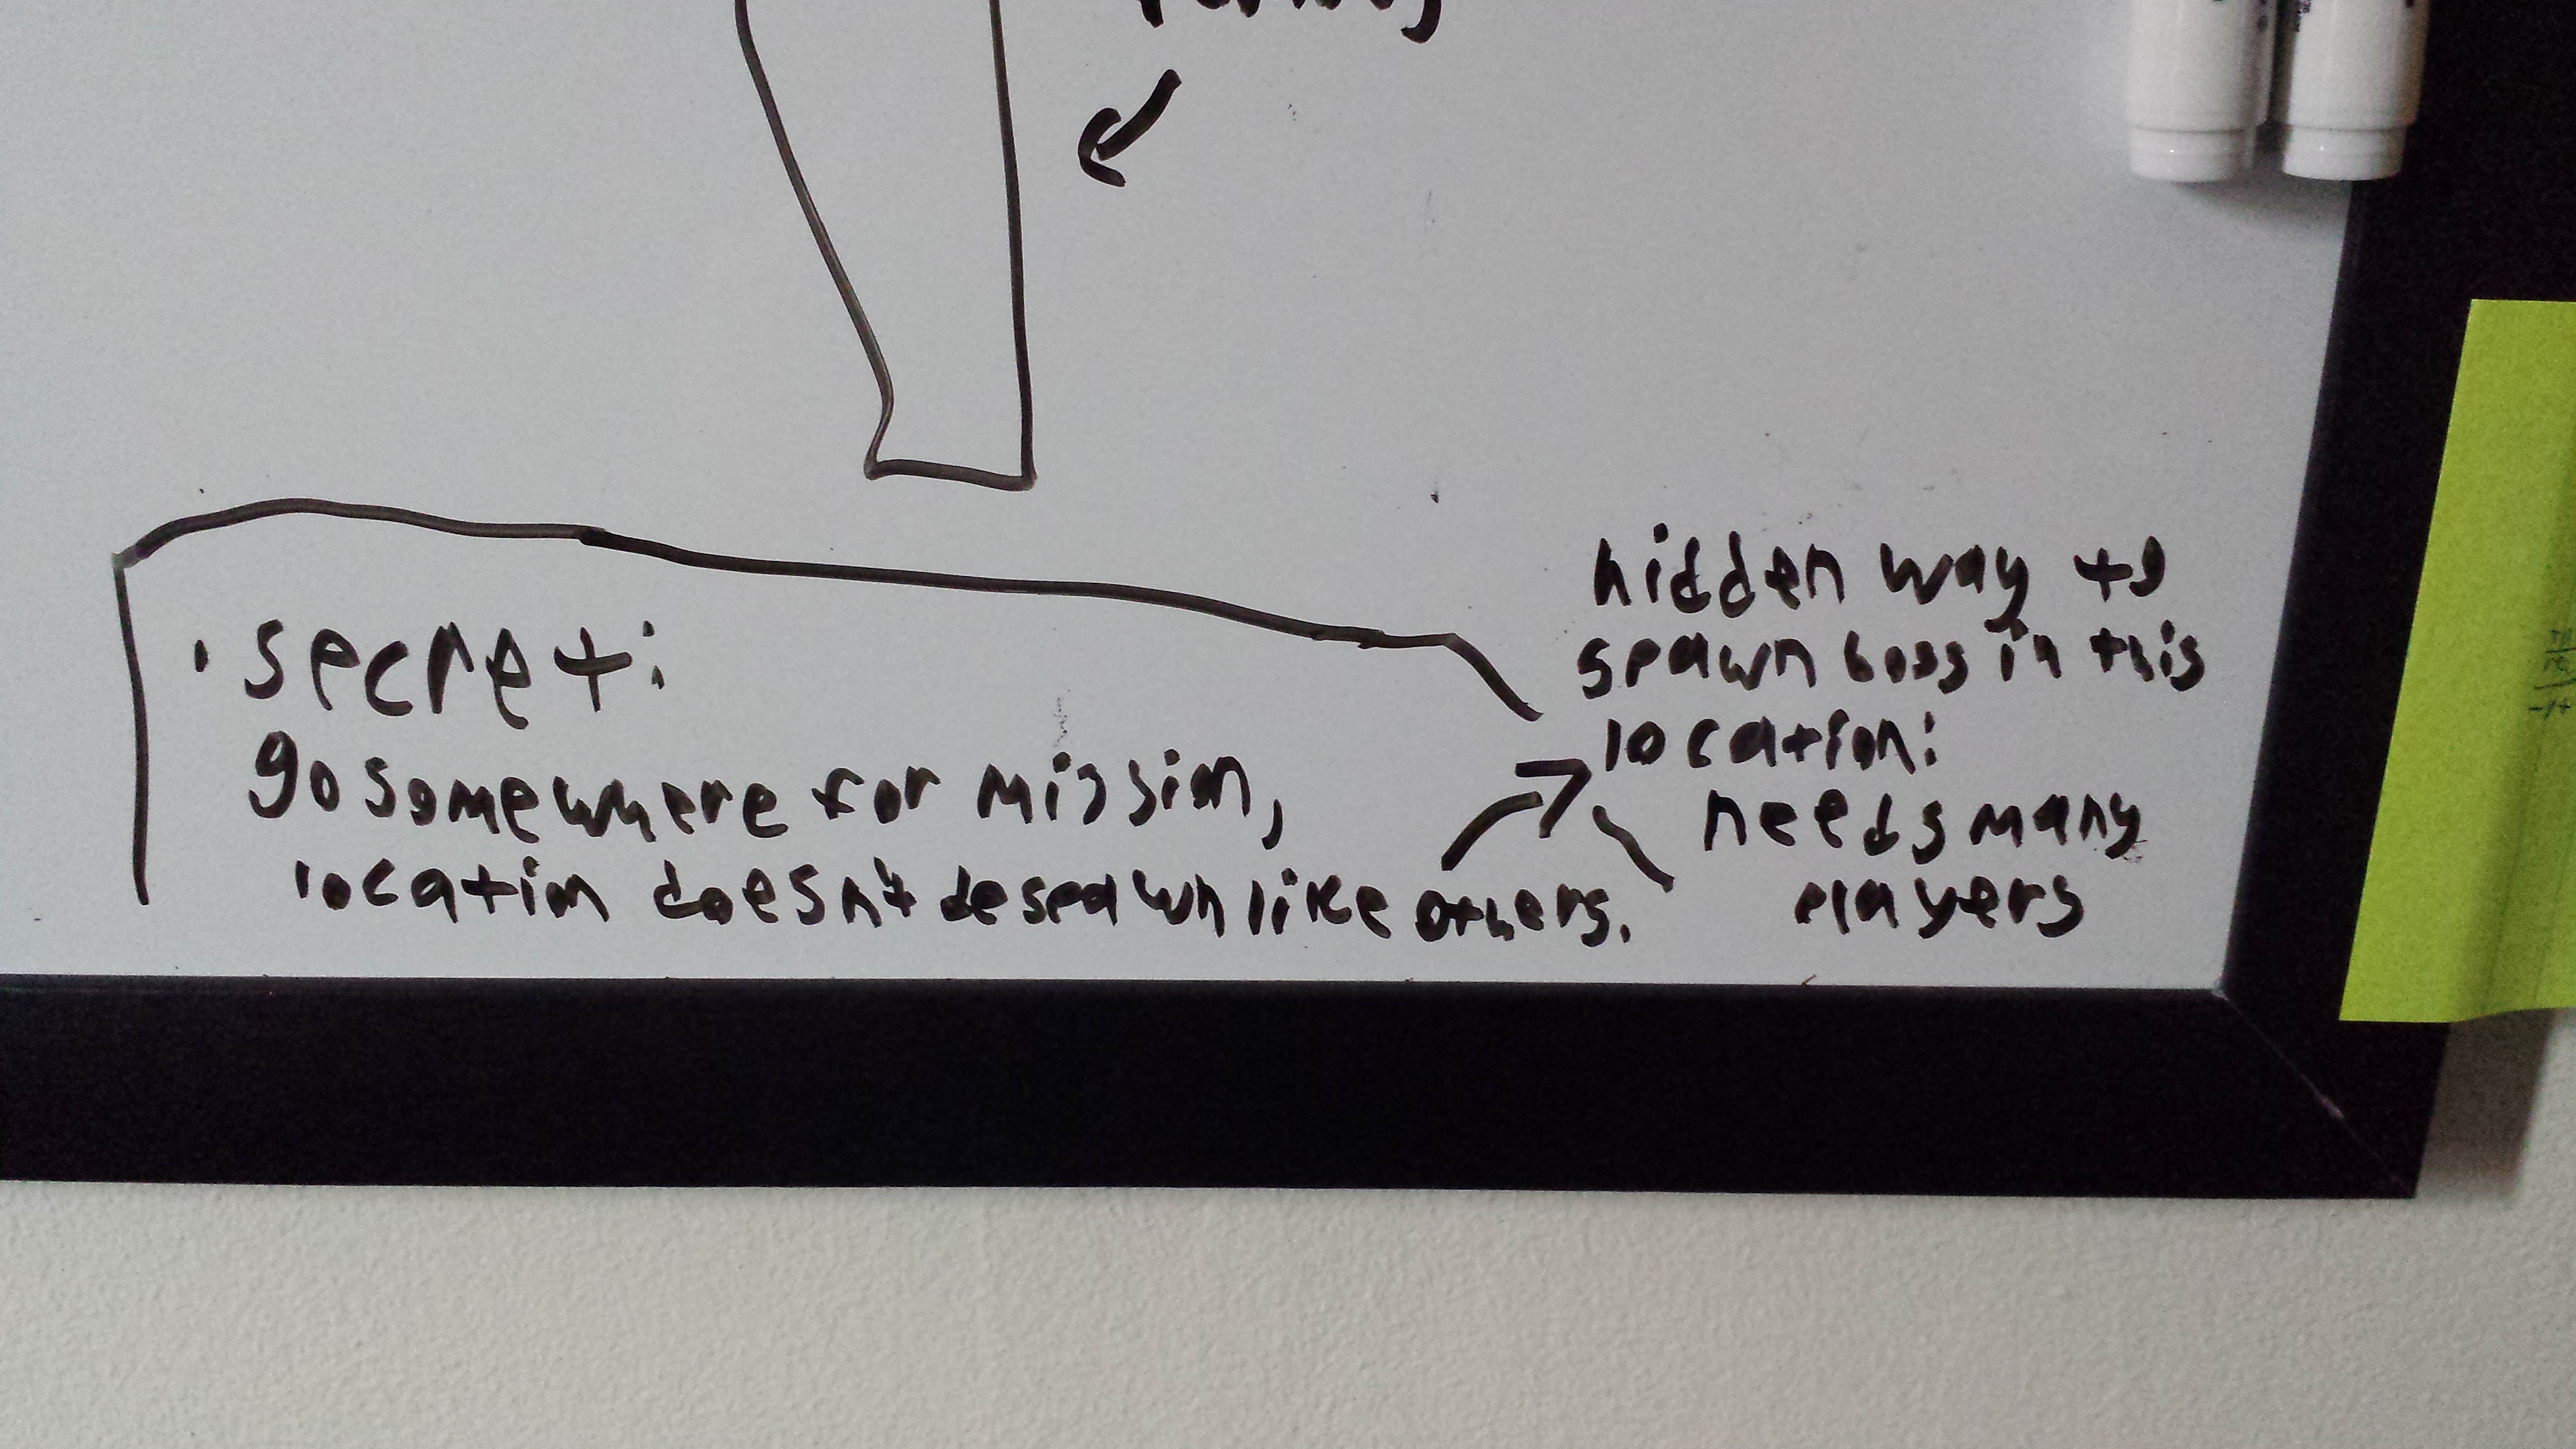 · secret:
go somewhere for mission,
location doesn't despawn like others.
hidden way to
spawn boss in this
location:
needs many
players